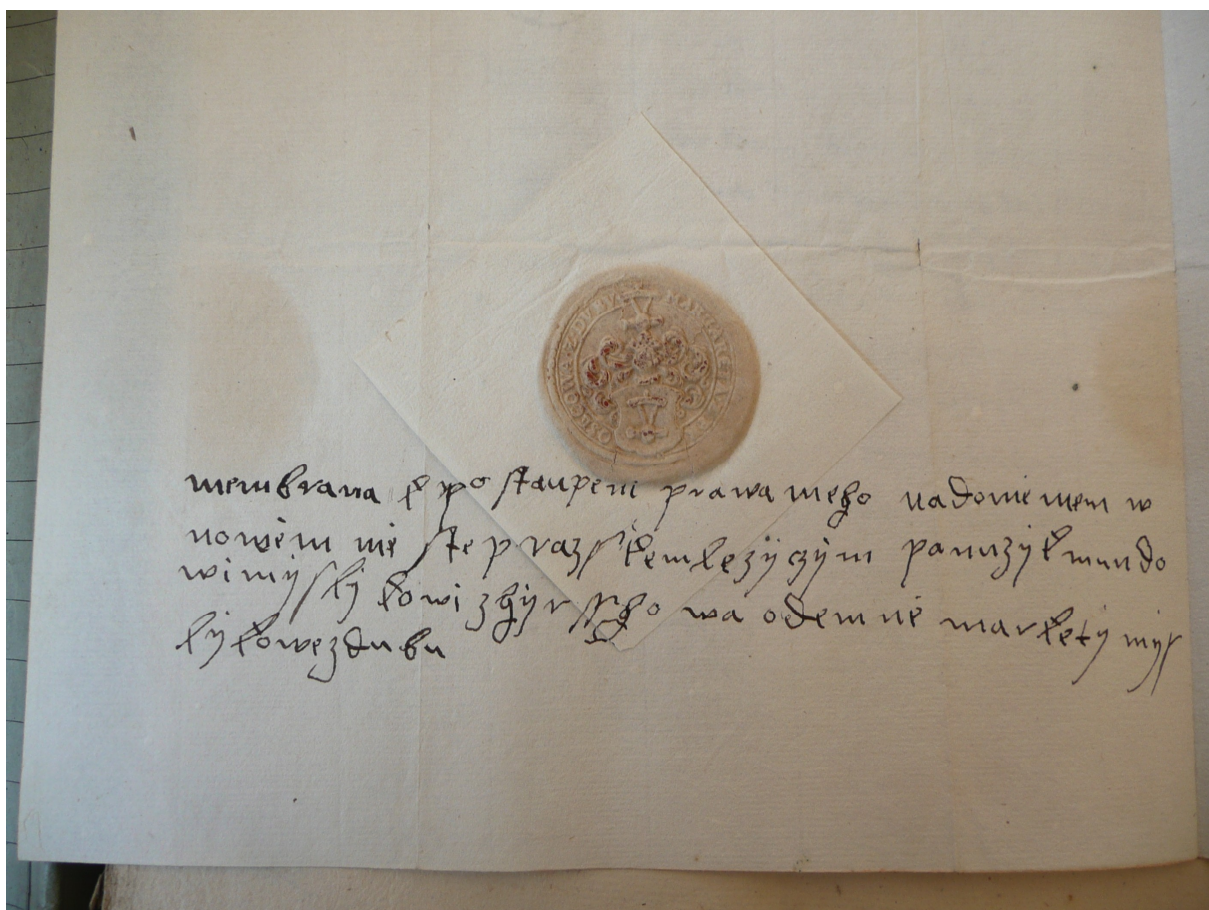 Z DVBV
membrana k postaupeni prawa meho na domie mem w
nowem mieste prazskem ležyczym panu zykmundo
wi myslykowi z hyrssho wa ode mne markety mys
lykowe z dubu